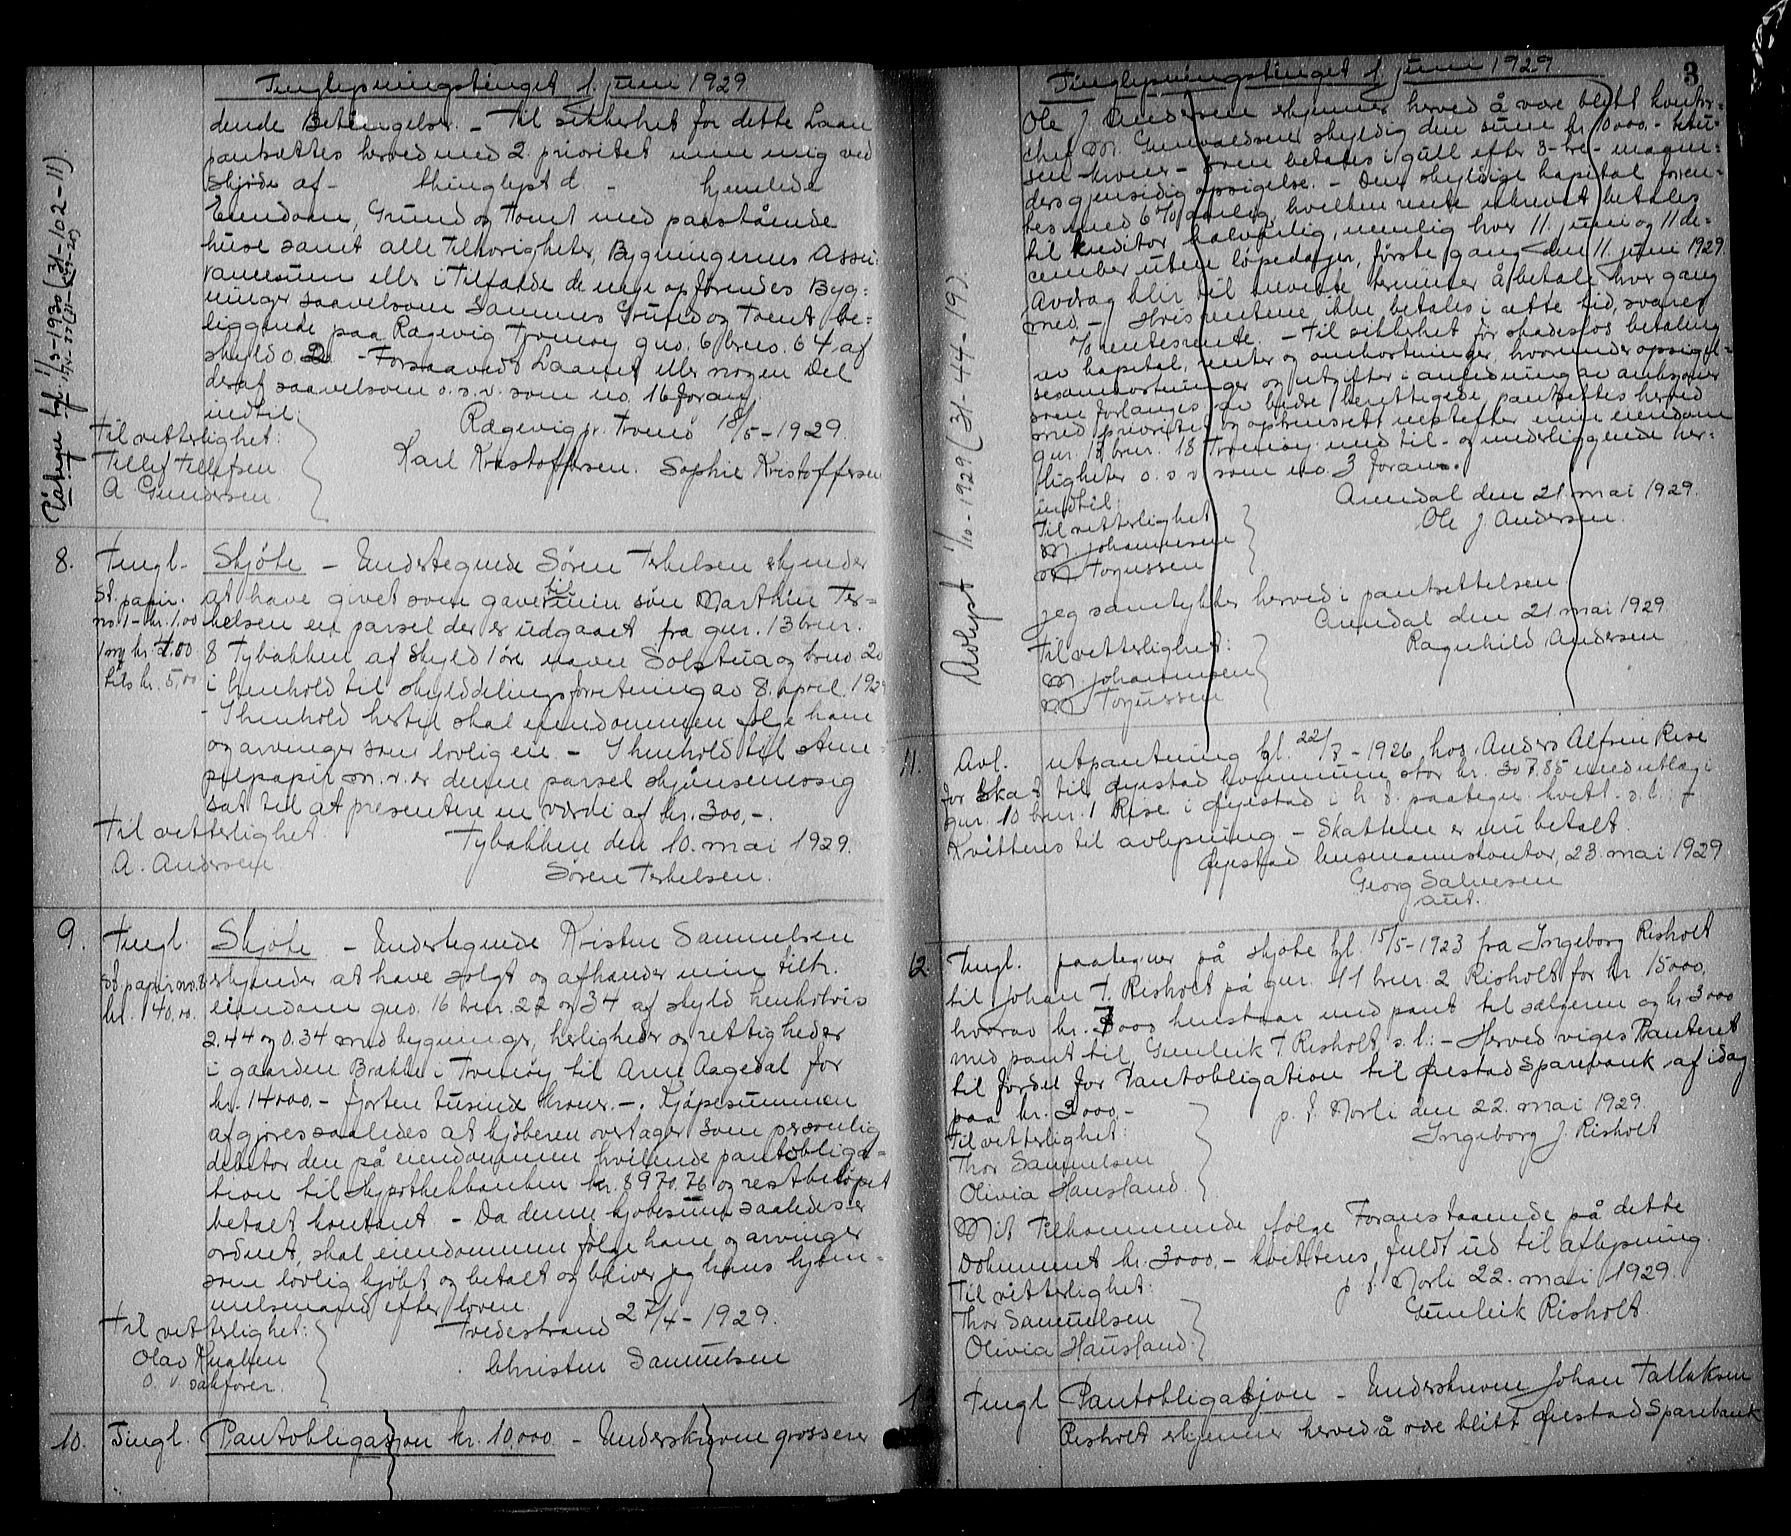 Tinglysningstinget 1. juni 1929
dende Betingelser. - Til sikkerhet for dette Laan
pantsættes herved med 2. prioritet min mig ved
skjøde af - thinglyst d - hjemlede
Eiendom, Grund og Tomt med paastående
huse samt alle tilhørigheter, Bygningernes Assu-
rancesum eller i Tilfælde de nye opførendes Byg-
ninger saavelsom sammes Grund og Tomt be-
liggende paa Rægevig Tromøy gno. 6 bno. 64 af
skyld 0. - Forsaavidt Laanet eller nogen Del
deraf saavelsom o.s.v. som no. 16 foran,
indtil:
Rægevig pr. Tromø 18/5-1929
Til vitterlighet:
Tellef Tellefsen
A Gundersen
Karl Kristoffersen. Sophie Kristoffersen
Påtegn. tgl. 1/3-1930 (31-102-11).
8. Tingl. Skjøte - Undertegnede Søren Terkelsen erkjender
St. papir. at have givet som gave til min søn Marthin Ter-
no. 1 - kr. 1,00 kelsen en parsel der er udgaaet fra gnr. 13 bnr.
8 Tybakken af skyld 1 øre navn Solstua og bno. 20
tils kr. 5,00 i henhold til skylddelingsforretning av 8. april 1929
- I henhold hertil skal eiendommen følge ham
og arvinger som lovlig eie. - I henhold til stem-
pelpapir m.v. er denne parsel skjønsmessig
sat til at presentere en værdi af kr. 300,-.
Til vitterlighet: Tybakken den 10. mai 1929.
A. Andersen Søren Terkelsen.
9. Tingl. Skjøte - Undertegnede Kristen Samuelsen
St. papir no. 8 erkjender at have solgt og afhænder min tilh.
kr. 140,00. eiendom gno. 16 bnr. 22 og 34 af skyld henholdvis
2.44 og 0.34 med bygninger, herligheder og rettigheder
i gaarden Brække i Tromøy til Arne Aagedal for
kr. 14000.- fjorten tusinde kroner.-. Kjøpesummen
afgjøres saaledes at kjøberen overtager som personlig
debitor den på eiendommen hvilende pantobliga-
tion til Hypothekbanken kr. 8970.76 og restbeløpet
betalt kontant. - Da denne kjøbesum saaledes er
ordnet, skal eiendommen følge ham og arvinger
som lovlig kjøbt og betalt og bliver jeg hans hjem-
melsmand efter loven.
Til vitterlighet: Tvedestrand 27/4-1929.
Olav Knatten Christen Samuelsen
o.r. sakfører.
10. Tingl. Pantobligasjon kr. 10,000 - Underskrevne grosserer
Tinglysningstinget 1. juni 1929. 3
Ole J. Andersen erkjenner herved å være blitt kontor-
chef M. Gunvaldsen skyldig den sum kr 10000.- titu-
sen-kroner- som betales i gull efter 3-tre- måne-
ders gjensidig opsigelse. - Den skyldige kapital forren-
tes med 6 % årlig hvilken rente ukrevet betales
til kreditor halvårlig, nemlig hver 11. juni og 11 de-
cember uten løpedager, første gang den 11 juni 1929.
Avdrag blir til nevnte terminer å betale hver gang
med - / Hvis rentene ikke betales i rette tid, svares
% rentesrente. - Til sikkerhet for skadesløs betaling
av kapital, renter og omkostninger, herunder opsigel-
sesomkostninger og utgifter i anledning av
som forlanges av bedre berettigede, pantsettes herved
med prioritet og oprinsrett nestefter min eiendom
gnr. 13 bnr. 18 Tromøy med til- og underliggende her-
ligheter o.s.v. som no. 3 foran.
indtil: Arendal den 21. mai 1929.
Til vitterlighet Ole J. Andersen.
M. Johannesen
M Torjussen
Jeg samtykker herved i pantsettelsen.
Arendal den 21. mai 1929.
Til vitterlighet: Ragnhild Andersen
M. Johannesen
M Torjussen
Avlyst 1/10-1929 (31-44-19).
11. Avl. utpantning tgl. 22/7-1926 hos Anders Alfsen Rise
for skat til Øyestad kommune stor kr. 307.85 med utlæg i
gnr. 10 bnr. 1 Rise i Øyestad i h. t. paategn. kvitt. s.l.:-
Kvitteres til avlysning - Skatten er nu betalt.
Øyestad lensmannskontor, 23. mai 1929
Georg Salvesen
aut.
12. Tingl. paategn. på skjøte tgl. 15/5-1923 fra Ingeborg Risholt
til Johan T. Risholt på gnr. 41 bnr. 2 Risholt for kr. 15000,
hvorav kr. 7000 henstaar med pant til sælgeren og kr. 3000
med pant til Gunleik T Risholt s.l.:- Herved viges Panteret
til fordel for Pantobligation til Øiestad Sparebank af idag
paa kr. 3000,-
Til vitterlighet: p. t. Norli den 22. mai 1929.
Thor Samuelsen Ingeborg J. Risholt
Olivia Hausland.
Mit Tilkommende ifølge Foranstaaende på dette
Dokument kr. 3000,- kvitteres fuldt ud til aflysning.
Til vitterlighet: p. t. Norli 22. mai 1929.
Thor Samuelsen Gunleik Risholt.
Olivia Hausland.
Tingl Pantobligasjon - Underskrevne Johan Tallaksen
Risholt erkjenner herved å være blitt Øiestad Sparebank